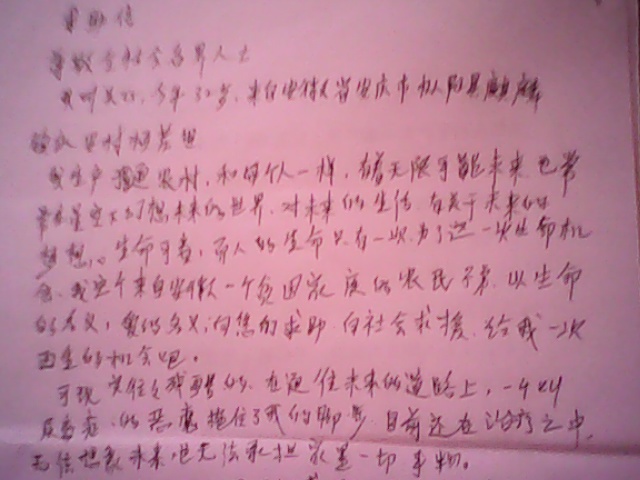 求助信
尊敬的社会各界人士
我叫 今年32岁，来自安徽省安庆市枞阳县麒麟
镇 村
我生 普通农村，和每个人一样，有着无限可能未来 也常
常在星空下幻想未来的世界，对未来的生活 有关于未来的
梦想。生命可贵，而人的生命只有一次，为了这一次生命机
会，我这个来自安徽一个贫困家庭的农民子弟，以生命
的名义，爱的名义；向您们求助 向社会求援，给我一次
重生的机会吧。
可现实往往是残酷的，在通往未来的道路上，一个叫
的恶魔 住了我的脚步 目前还在治疗之中，
无法想象未来，也无法承担家里一切事物。